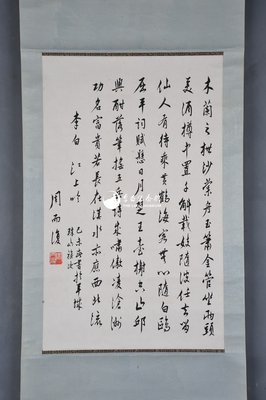 木蘭之枻沙棠舟玉簫金管坐兩頭
美酒樽中置千斛載妓隨波任去留
仙人有待乘黃鶴海客無心隨白鷗
屈平詞賦懸日月楚王臺榭空山邱
興酣落筆搖五岳詩成嘯傲凌滄洲
功名富貴若長在漢水亦應西北流
李白 江上吟
周而復